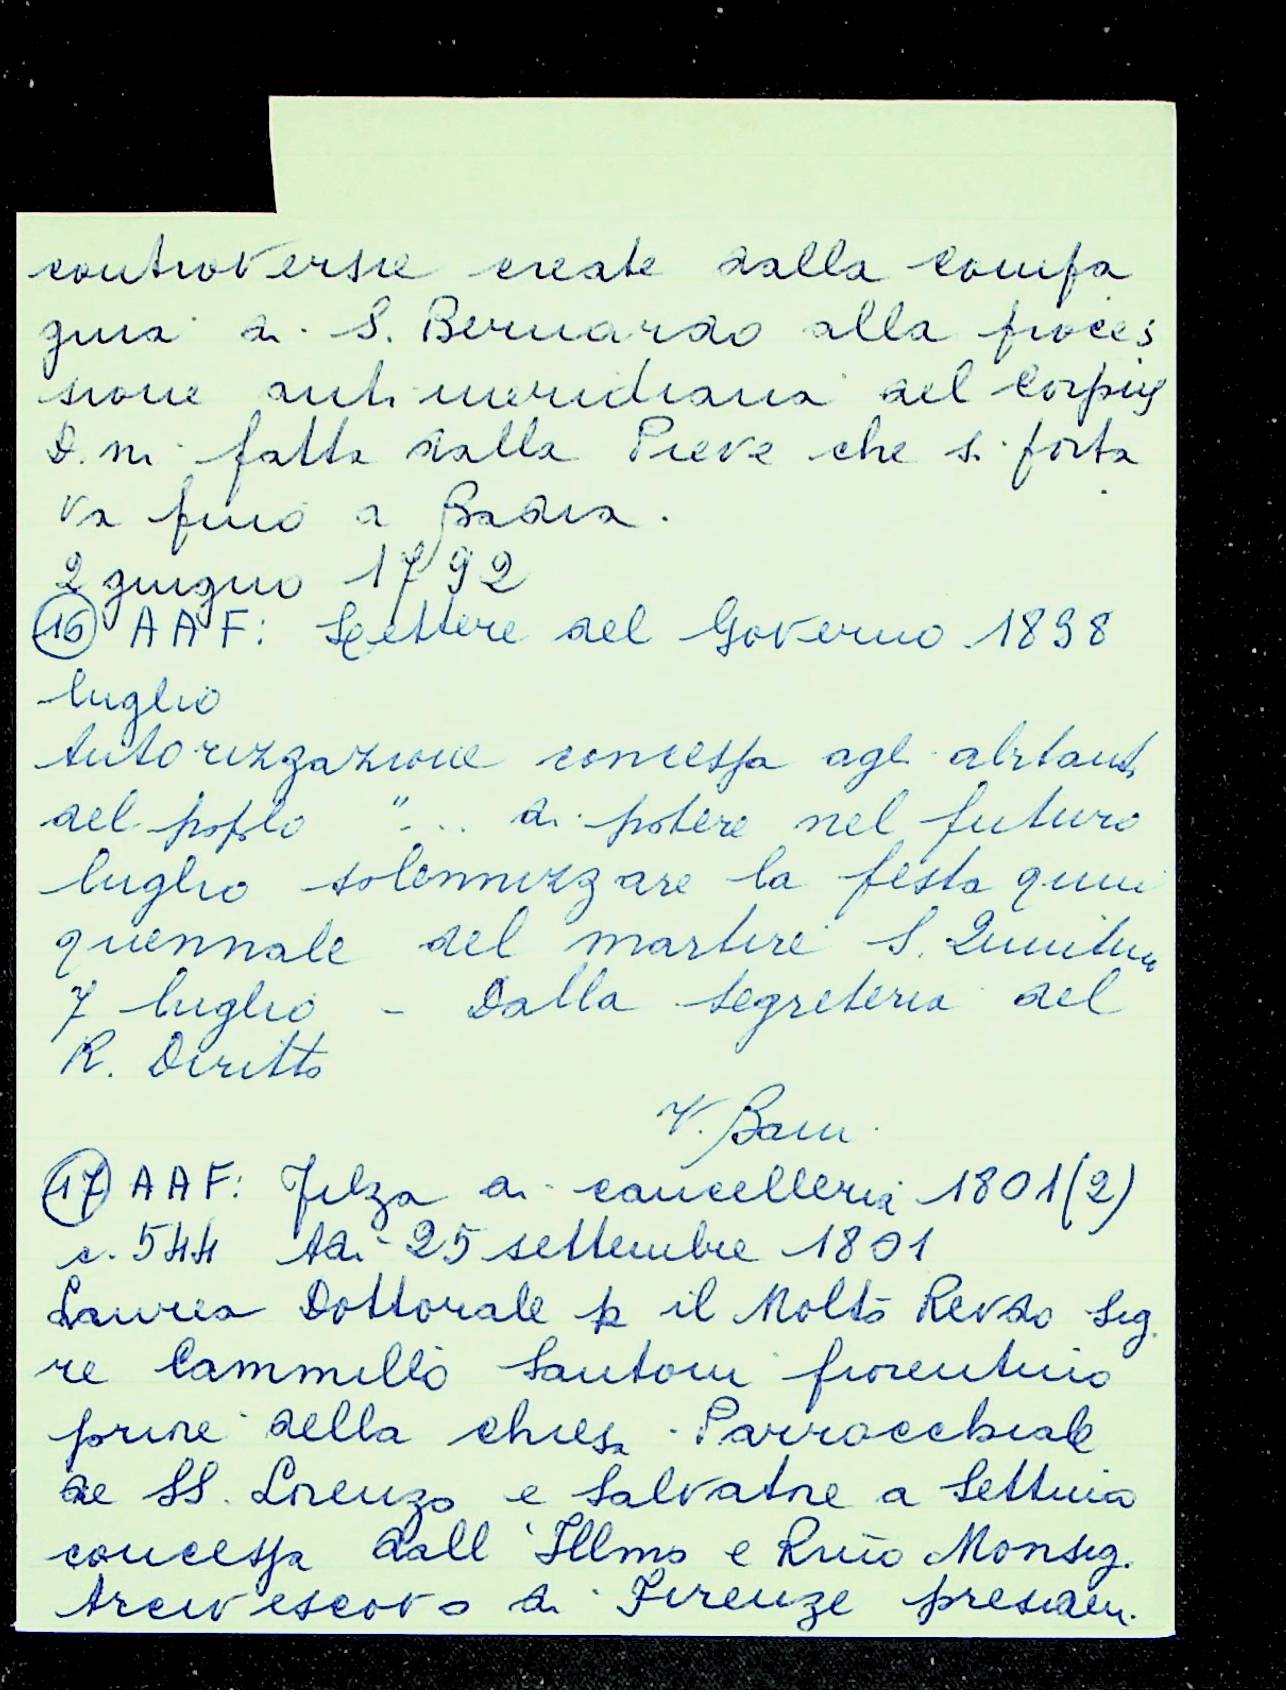 controversie create dalla compa
gnia di S. Bernardo alla proces
sione antimeridiana del Corpus
D.ni fatta dalla Pieve che si porta
va fino a Badia.
2 giugno 1792
(16) AAF: Lettere del Governo 1898
luglio
Autorizzazione concessa agli abitanti
del popolo "... di potere nel futuro
luglio solennizzare la festa quin
quennale del martire S.
7 luglio - Dalla Segreteria del
R. Diritto
V. Bani
(17) AAF: Filza di cancelleria 1801(2)
c. 544 Adi 25 settembre 1801
Laurea Dottorale p il Molto Revdo Sig.
re Cammillo Santoni fiorentino
priore della chiesa Parrocchiale
de SS. Lorenzo e Salvatore a Settimo
concessa dall'Illmo e Rmo Monsig.
Arcivescovo di Firenze presiden.